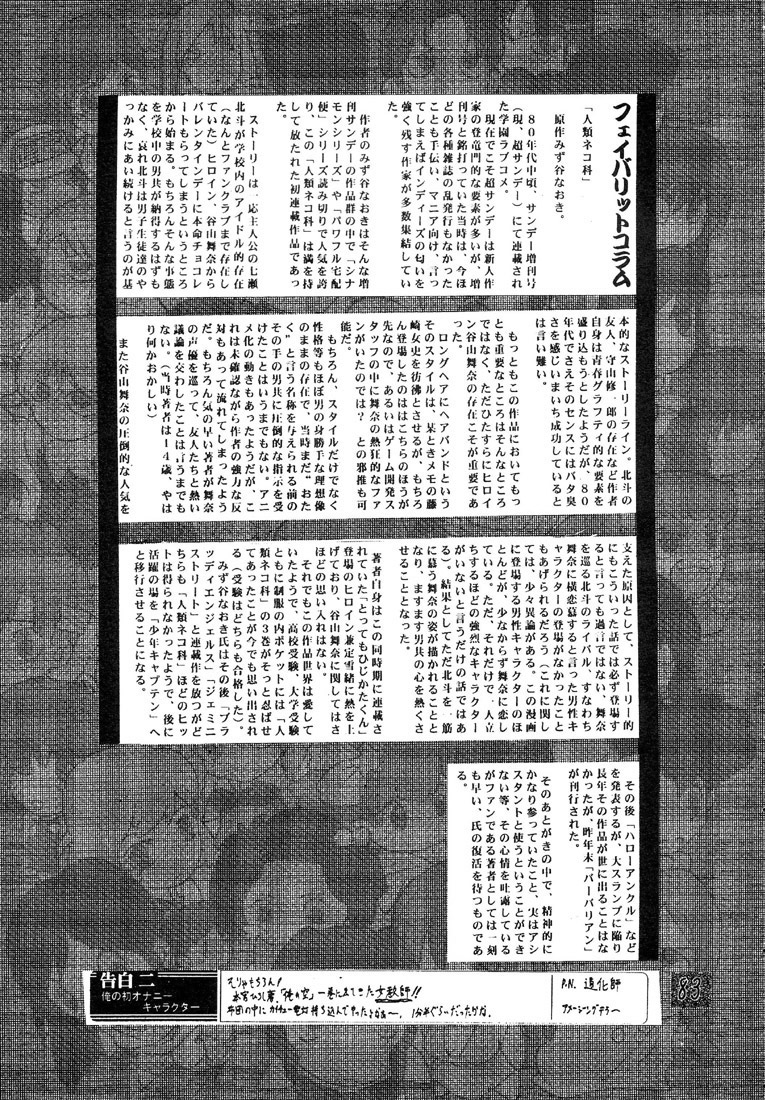 フェイバリットコラム
「人類ネコ科」
原作みず谷なおき。
８０年代中頃、サンデー増刊号
（現、超サンデー）にて連載され
た学園ラブコメ。
現在でこそ超サンデーは新人作
家の登竜門的な要素が多いが、増
刊号と銘打っていた当時は、今ほ
どの各種雑誌の乱発行もなかった
ことも手伝い、マニア向け、言っ
てしまえばインディーズの匂いを
強く残す作家が多数集結してい
た。
作者のみず谷なおきはそんな増
刊サンデーの作品群の中で「シナ
モンシリーズ」や「パワフル宅配
便」シリーズ読み切りで人気を誇
り、この「人類ネコ科」は満を持
して放たれた初連載作品であっ
た。
ストーリーは一応主人公の七瀬
北斗が学校内のアイドル的存在
（なんとファンクラブまで存在し
ていた）ヒロイン、谷山舞奈から
バレンタインデーに本命チョコレ
ートもらってしまうというところ
から始まる。もちろんそんな事態
を学校中の男共が納得するはずも
なく、哀れ北斗は男子生徒達のや
っかみにあい続けると言うのが基
本的なストーリーライン。北斗の
友人、守山修一郎の存在など作者
自身は青春グラフティ的な要素を
盛り込もうとしたようだが、８０
年代でさえそのセンスにはバタ臭
さを感じいまいち成功していると
は言い難い。
もっともこの作品においてもっ
とも重要なところはそんなところ
ではなく、ただひたすらにヒロイ
ン谷山舞奈の存在こそが重要であ
った。
ロングヘアにヘアバンドという
そのスタイルは、某ときメモの藤
崎女史を彷彿とさせるが、もちろ
ん登場したのははこちらのほうが
先なので、あるいはゲーム開発ス
タッフの中に舞奈の熱狂的なファ
ンがいたのでは？　との邪推も可
能だ。
もちろん、スタイルだけでなく
性格等もほぼ男の身勝手な理想像
のままの存在で、当時まだ“おた
く”と言う名称を与えられる前の
その手の男共に圧倒的な指示を受
けたことはいうまでもない。アニ
メ化の動きもあったようだが、こ
れは未確認ながら作者の強力な反
対もあって流れてしまったよう
だ。もちろん気の早い著者が舞奈
の声優を巡って、友人たちと熱い
議論を交わしたことは言うまでも
ない。（当時著者は１４歳、やは
り何かおかしい）
また谷山舞奈の圧倒的な人気を
支えた原因として、ストーリー的
にもこういった話では必ず登場す
ると言っても過言ではない、舞奈
を巡る北斗のライバル、すなわち
舞奈に横恋慕すると言った男性キ
ャラクターの登場がなかったこと
もあげられるだろう（これに関し
ては、少々異論がある。この漫画
に登場する男性キャラクターのほ
とんどが、少なからず舞奈に恋し
ている。ただ、それだけで一人立
ちするほどの強烈なキャラクター
がいないと言うだけの話ではあ
る）。結果としてただ北斗を一筋
に慕う舞奈の姿が描かれることと
なり、ますます男共の心を熱くさ
せることとなった。
著者自身はこの同時期に連載さ
れていた「とってもひじかたくん」
登場のヒロイン兼定雪緒に熱を上
げており、谷山舞奈に関してはさ
ほどの思い入れはない。
それでもこの作品世界は愛して
いたようで、高校受験、大学受験
ともに制服の内ポケットには「人
類ネコ科」の３巻がそっと忍ばせ
てあったことが今でも思い出され
る（受験はどちらも合格した）。
みず谷なおき氏はその後「ブラ
ッディエンジェルス」「ジェミニ
ストリート」と連載作を放つがど
ちらも「人類ネコ科」ほどのヒッ
トは得られなかったようで、後に
活躍の場を「少年キャプテン」へ
と移行させることになる。
その後「ハローアンクル」など
を発表するが、大スランプに陥り
長年その作品が世に出ることはな
かったが、昨年末「バーバリアン」
が刊行された。
そのあとがきの中で、精神的に
かなり参っていたこと、実はアシ
スタントと使うということができ
ない等、その心情を吐露している
がファンである著者としては一刻
も早い、氏の復活を待つものであ
る。
告白二
俺の初オナニー
キャラクター
むりゃもちろん！
本宮ひろし著、「俺の空」一巻に出てきた女教師!!
P.N. 道化師
83